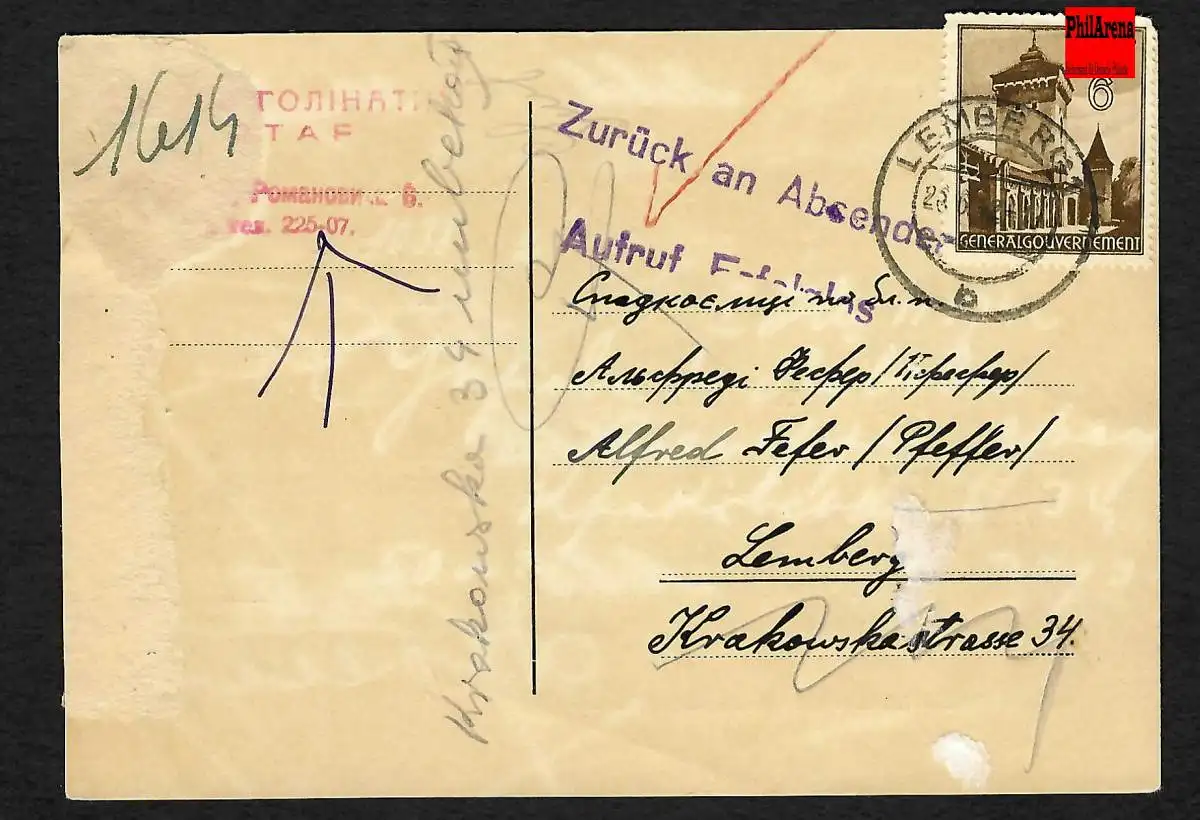 1614
ГОЛІНАТИ
ТАР
Романович. 6.
тел. 225-07.
Krakowska 34
Zurück an Absender
Aufruf Erfolglos
PhilArena
6
LEMBERG
b
GENERALGOUVERNEMENT
Спадкоємці по бл. п.
Альфреді Фефер/Пфеффер/
Alfred Fefer /Pfeffer/
Lemberg
Krakowskastrasse 34.